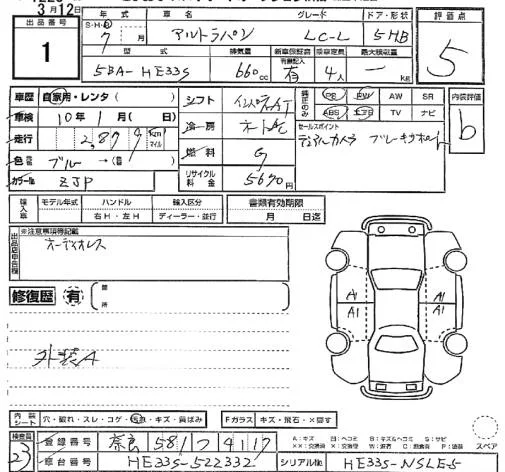 3月12日
出品番号
1
年式 車名 グレード ドア・形状 評価点
S・H・R
7月 アルトラパン LC-L 5HB 5
型式 排気量 新車保証書 乗車定員 最大積載量
有無記入
5BA-HE33S 660cc 有 4人 ー kg
車歴 自家用・レンタ( ) シフト インパネAT 純正のみ PS PW AW SR 内装評価
車検 10年1月( 日) 冷房 ABS エアB TV ナビ b
走行 km マイル セールスポイント
色 ブルー→( ) 燃料 G デュアルカメラ ブレーキサポート
カラー№ ZJP リサイクル料金 5690円
輸入車 モデル年式 ハンドル 輸入区分 書類有効期限
右H・左H ディーラー・並行 月 日迄
出品店申告欄 ※注意事項等記載
オーディオレス
修復歴 有 箇所
A1 A1
A1 A1
外装A
内装シート 穴・破れ・スレ・コゲ・汚れ・キズ・肩ばみ Fガラス キズ・飛石・X要す
検査員 登録番号 奈良 581 ツ 4117
23 車台番号 HE33S-522332 シリアル№ HE33S-NSLE-5
スペア